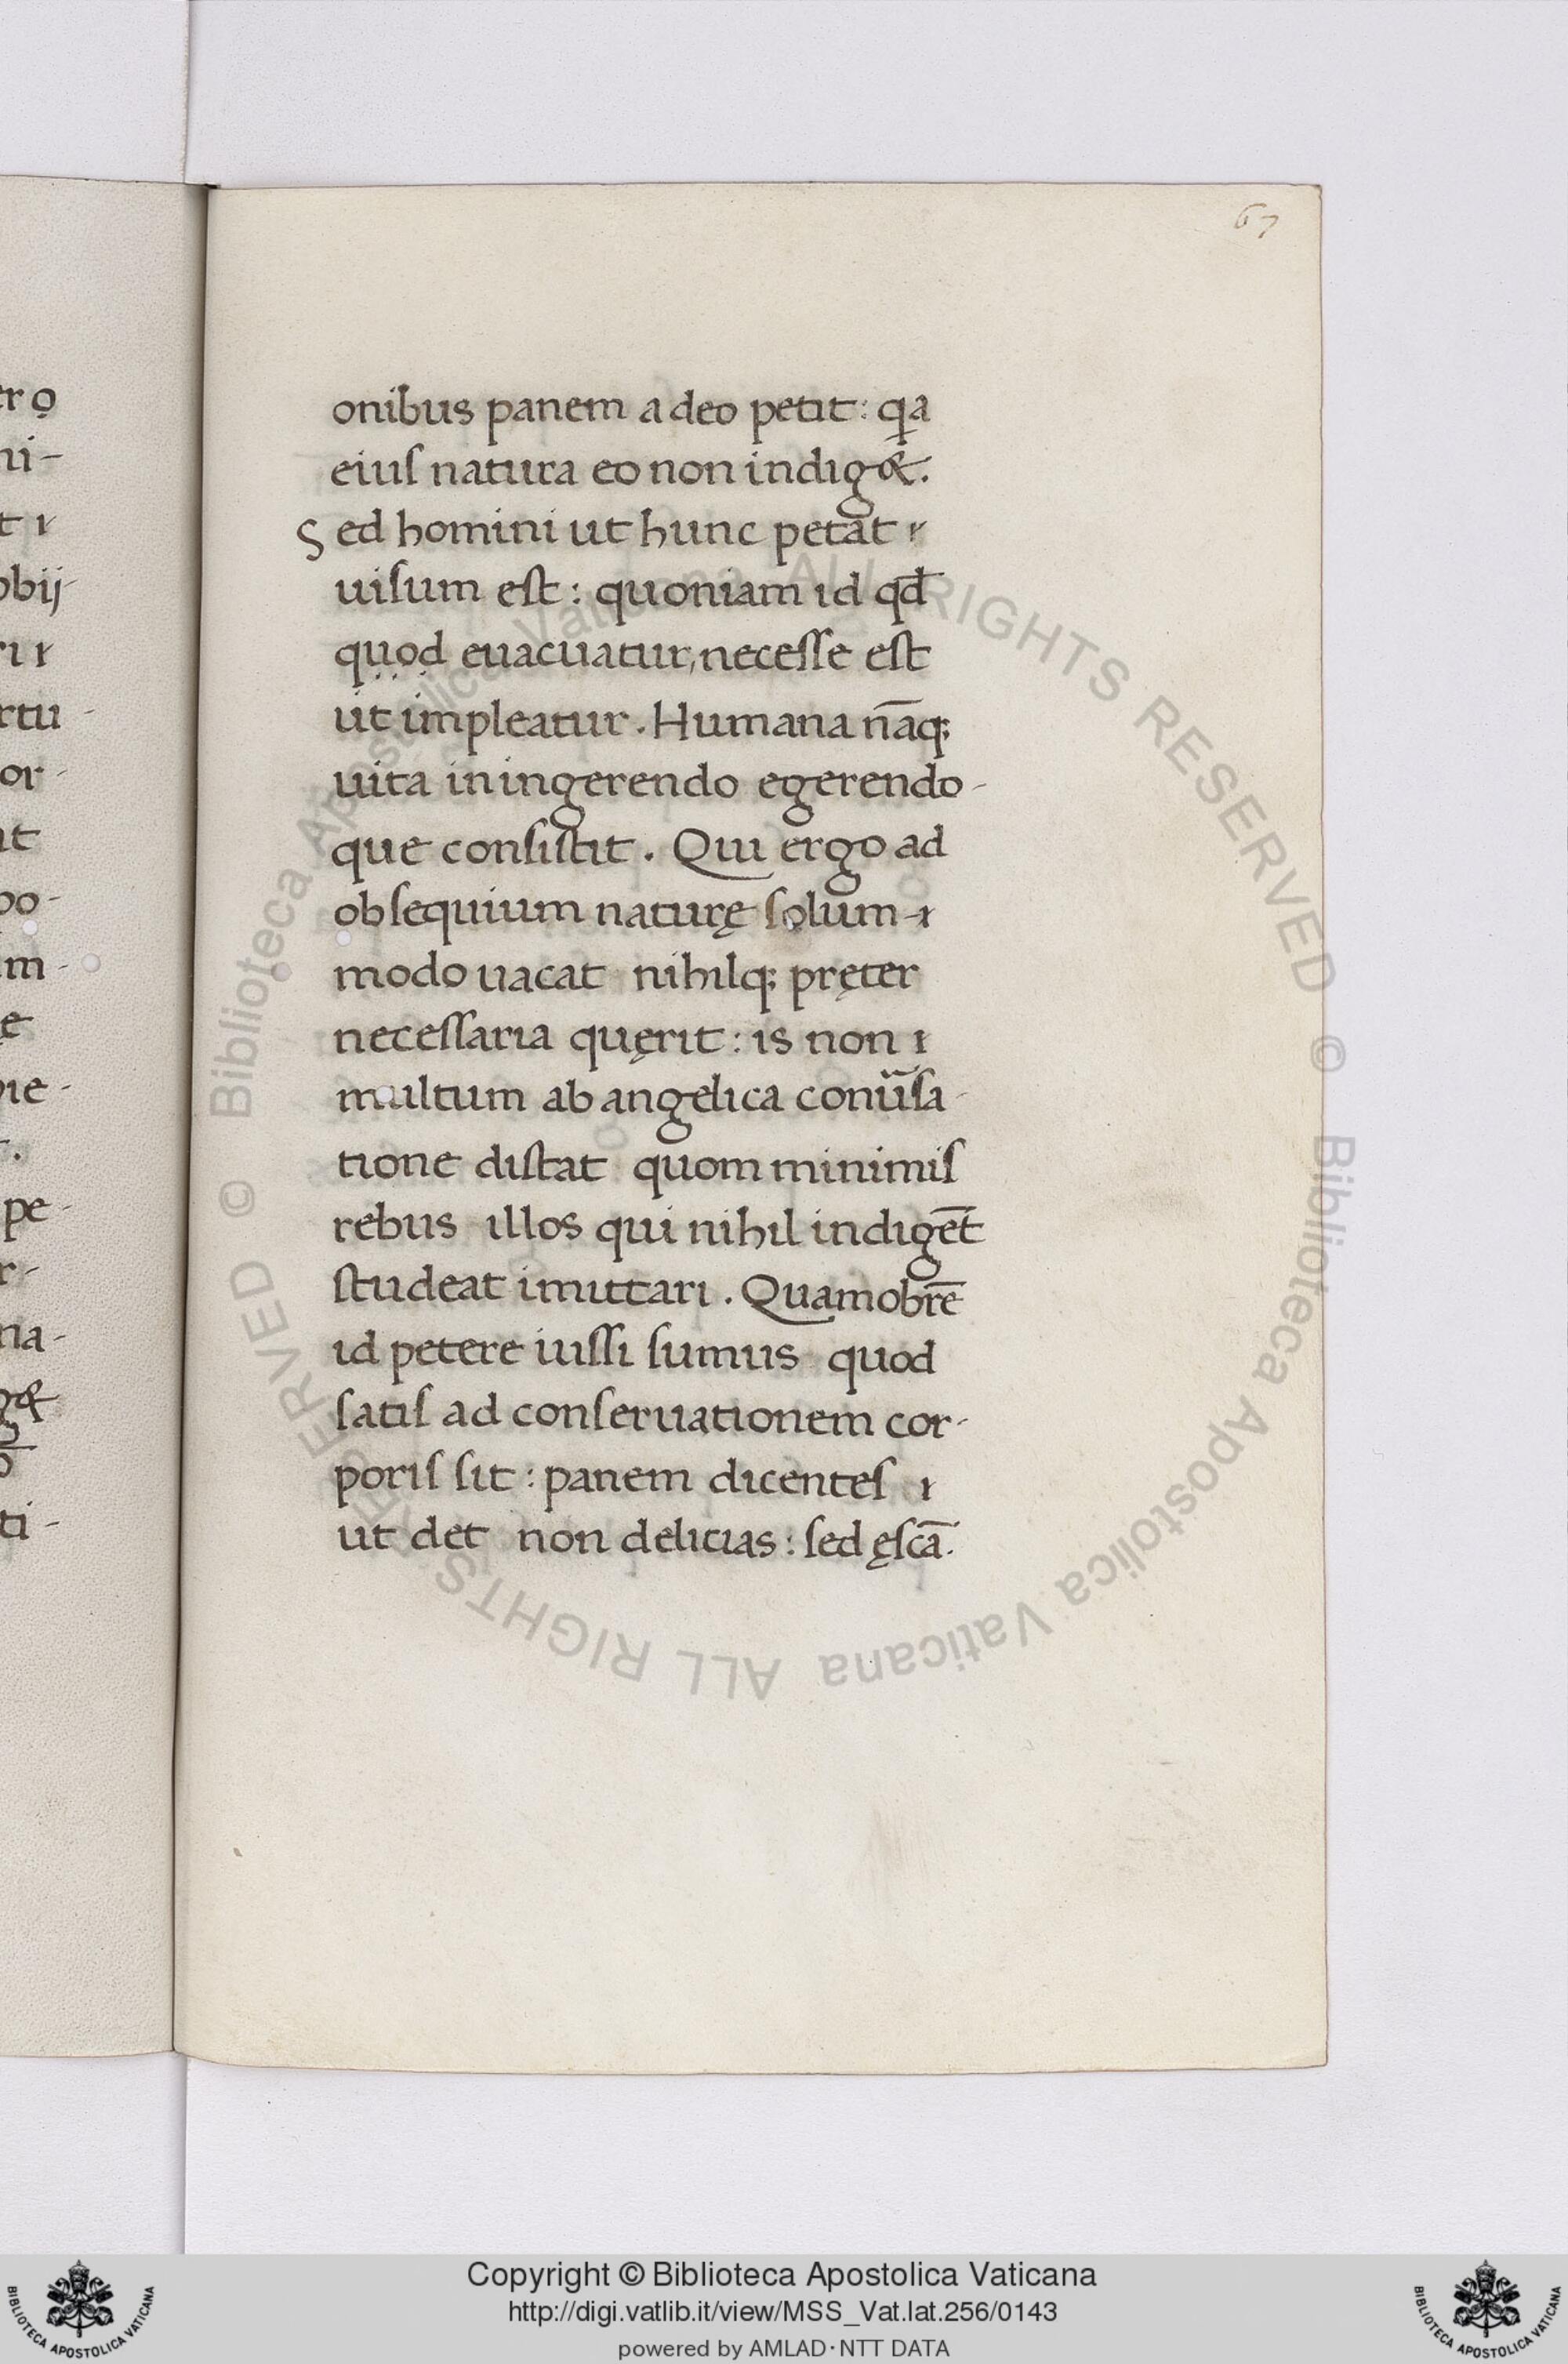 67
onibus panem a deo petit: qa
eiuſ natura eo non indig&.
Sed homini ut hunc petat
uiſum eſt: quoniam id qd̄
quod euacuatur, neceſſe eſt
ut impleatur. Humana nāq;
uita in ingerendo egerendo-
que conſiſtit. Qui ergo ad
obſequium naturę ſolum-
modo uacat nihilq; pręter
neceſſaria quęrit: is non
multum ab angelica conūſa-
tione diſtat quom minimiſ
rebus illos qui nihil indigēt
ſtudeat imittari. Quamobrē
id petere iuſſi ſumus quod
ſatiſ ad conſeruationem cor-
poriſ ſit: panem dicenteſ
ut det non delicias: ſed ęſcā.
© Biblioteca Apostolica Vaticana ALL RIGHTS RESERVED
© Biblioteca Apostolica Vaticana ALL RIGHTS RESERVED
Copyright © Biblioteca Apostolica Vaticana
http://digi.vatlib.it/view/MSS_Vat.lat.256/0143
powered by AMLAD·NTT DATA
BIBLIOTECA APOSTOLICA VATICANA
BIBLIOTECA APOSTOLICA VATICANA